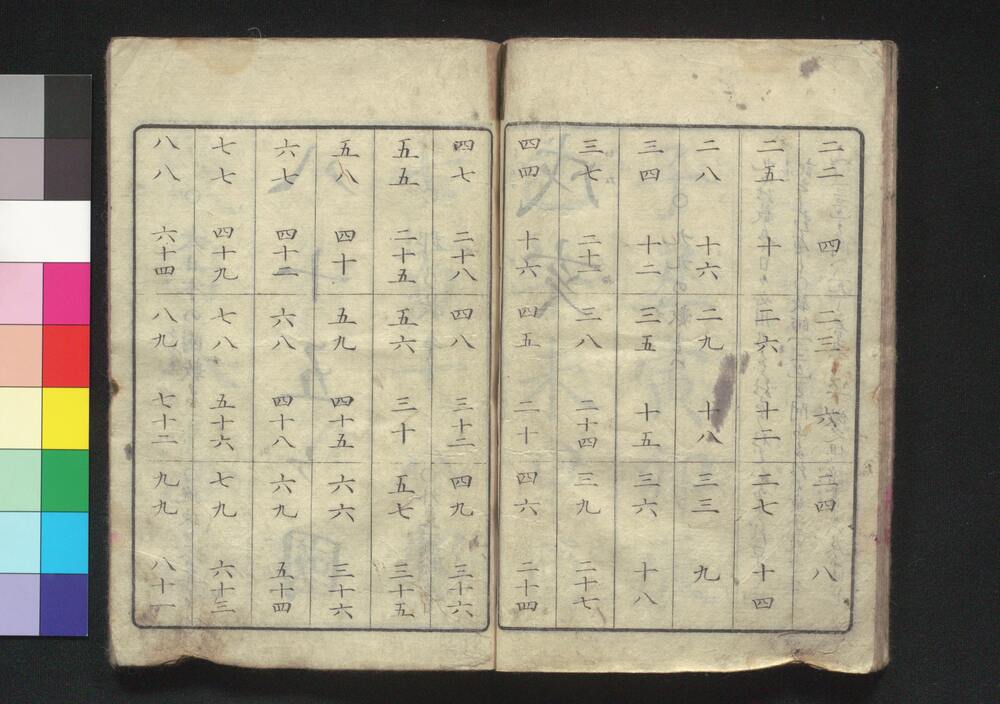 二二 四 二三 六 二四 八
二五 十 二六 十二 二七 十四
二八 十六 二九 十八 三三 九
三四 十二 三五 十五 三六 十八
三七 二十一 三八 二十四 三九 二十七
四四 十六 四五 二十 四六 二十四
四七 二十八 四八 三十二 四九 三十六
五五 二十五 五六 三十 五七 三十五
五八 四十 五九 四十五 六六 三十六
六七 四十二 六八 四十八 六九 五十四
七七 四十九 七八 五十六 七九 六十三
八八 六十四 八九 七十二 九九 八十一